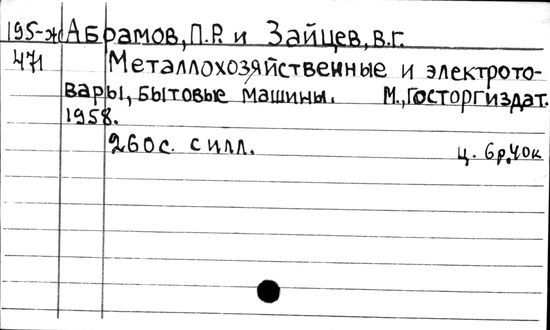 195-ж Абрамов, П.Р. и Зайцев, В.Г.
471 Металлохозяйственные и электрото-
вары, бытовые машины. М., Госторгиздат.
1958.
260с. с илл. ц. 6р.40к